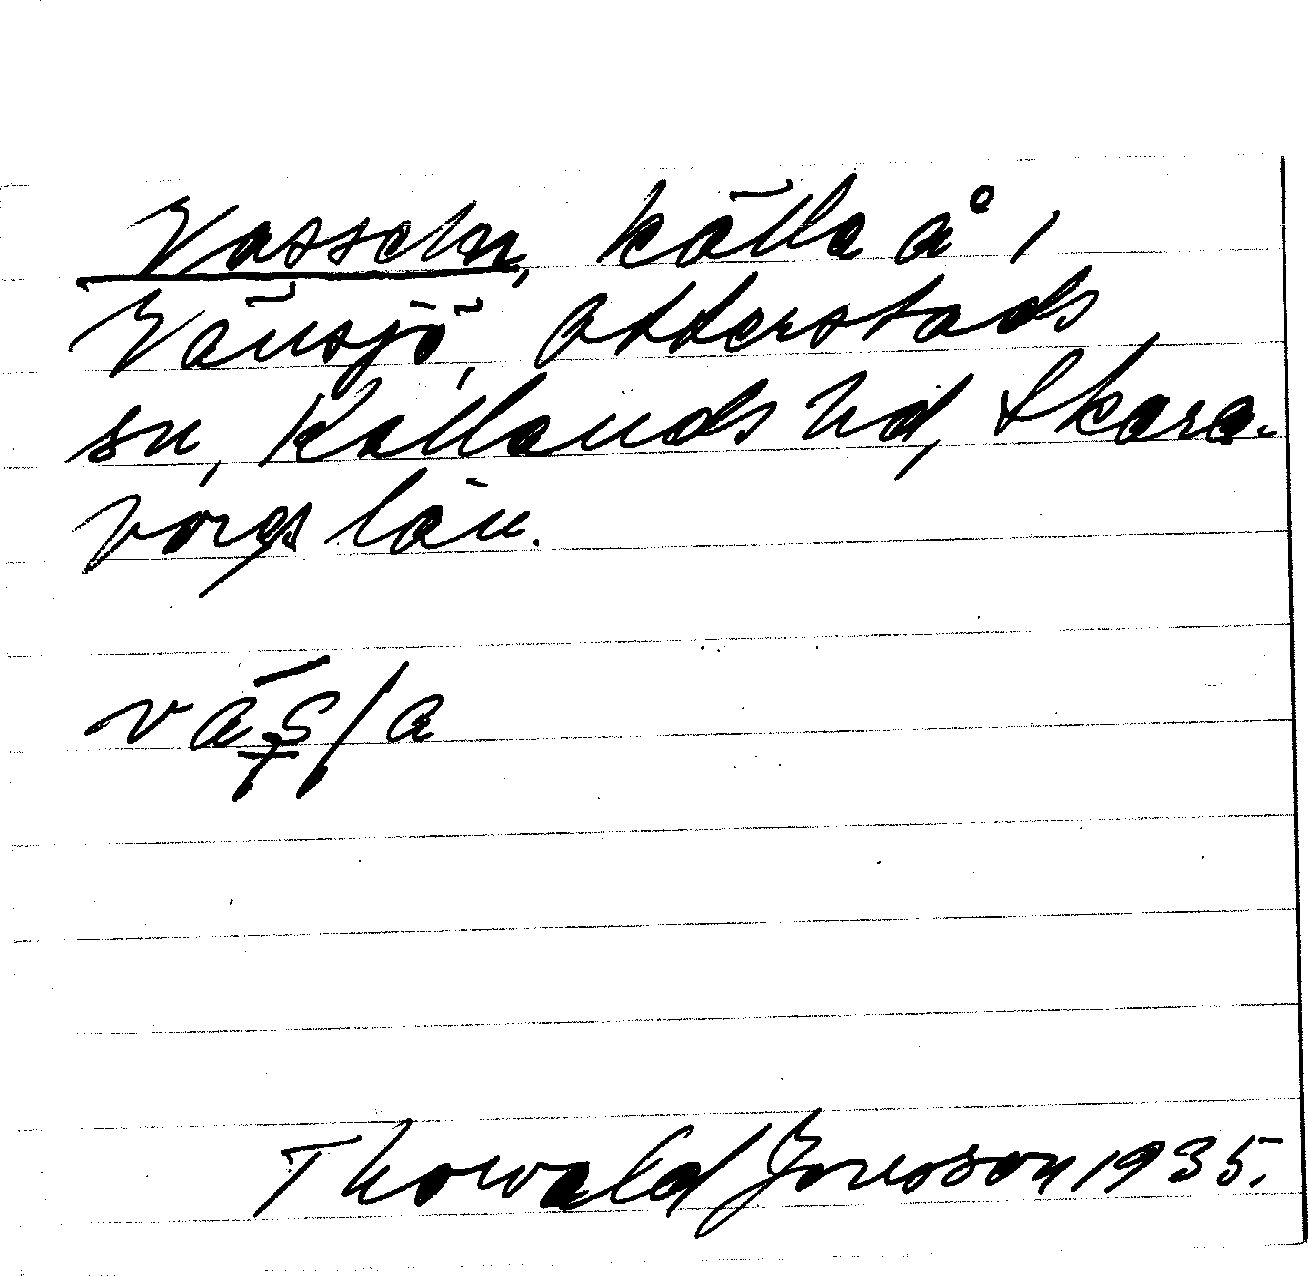 Vasseln, källa å 1
Vänsjö, Otterstads
sn, Kållands hd, Skara-
borgs län.
Thorvald Jonsson 1935.